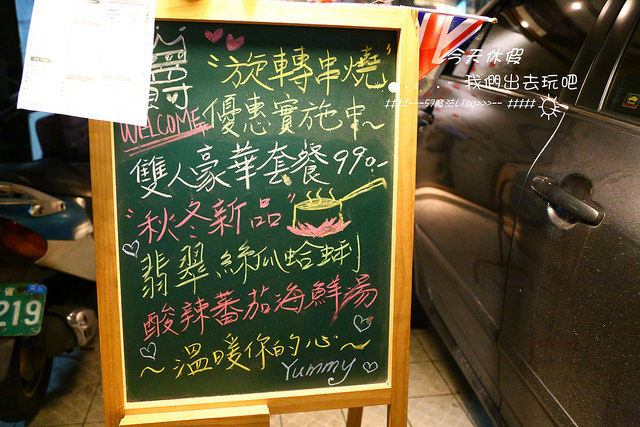 爵
"旋轉串燒"
WELCOME 優惠實施中~
雙人豪華套餐990.-
"秋冬新品"
翡翠絲瓜蛤蜊
酸辣蕃茄海鮮湯
~溫暖你的心~
Yummy
今天休假
我們出去玩吧
219